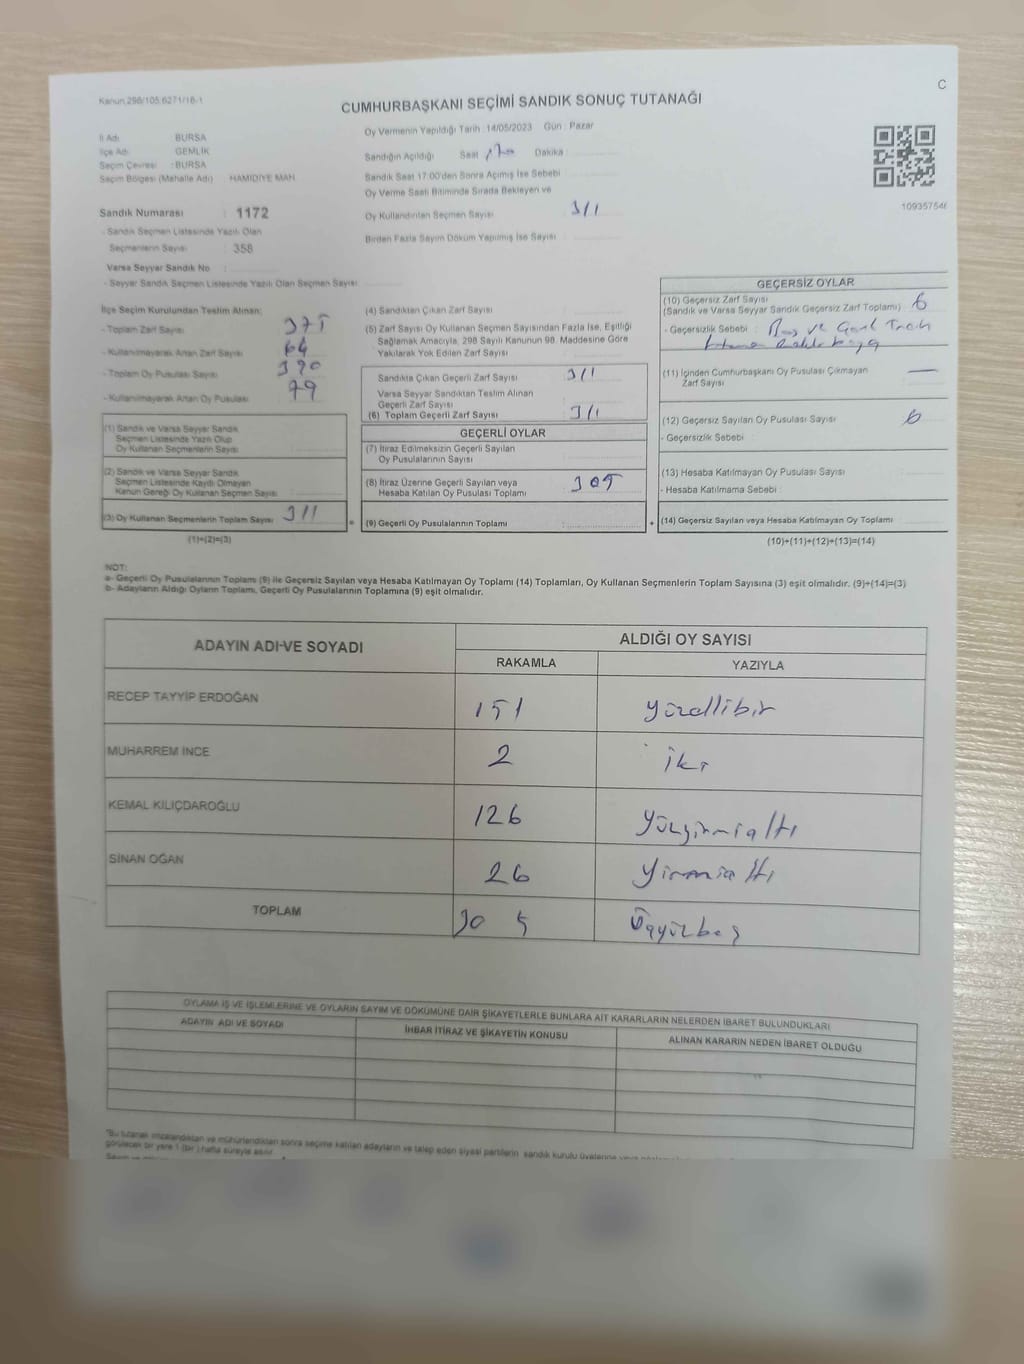 Kanun 298/105,6271/18-1
C
CUMHURBAŞKANI SEÇİMİ SANDIK SONUÇ TUTANAĞI
İl Adı : BURSA
İlçe Adı : GEMLİK
Seçim Çevresi : BURSA
Seçim Bölgesi (Mahalle Adı) : HAMİDİYE MAH.
Sandık Numarası : 1172
- Sandık Seçmen Listesinde Yazılı Olan
Seçmenlerin Sayısı : 358
Varsa Seyyar Sandık No :
- Seyyar Sandık Seçmen Listesinde Yazılı Olan Seçmen Sayısı
Oy Vermenin Yapıldığı Tarih : 14/05/2023 Gün : Pazar
Sandığın Açıldığı Saat Dakika
Sandık Saat 17:00'den Sonra Açımış İse Sebebi
Oy Verme Saati Bitiminde Sırada Bekleyen ve
Oy Kullandırılan Seçmen Sayısı 311
Birden Fazla Sayım Döküm Yapılmış İse Sayısı
10935754
İlçe Seçim Kurulundan Teslim Alınan:
- Toplam Zarf Sayısı 375
- Kullanılmayarak Artan Zarf Sayısı 64
- Toplam Oy Pusulası Sayısı 390
- Kullanılmayarak Artan Oy Pusulası 79
(1) Sandık ve Varsa Seyyar Sandık
Seçmen Listesinde Yazılı Olup
Oy Kullanan Seçmenlerin Sayısı
(2) Sandık ve Varsa Seyyar Sandık
Seçmen Listesinde Kayıtlı Olmayan
Kanun Gereği Oy Kullanan Seçmen Sayısı
(3) Oy Kullanan Seçmenlerin Toplam Sayısı 311
(1)+(2)=(3)
(4) Sandıktan Çıkan Zarf Sayısı
(5) Zarf Sayısı Oy Kullanan Seçmen Sayısından Fazla İse, Eşitliği
Sağlamak Amacıyla, 298 Sayılı Kanunun 98. Maddesine Göre
Yakılarak Yok Edilen Zarf Sayısı
Sandıkta Çıkan Geçerli Zarf Sayısı 311
Varsa Seyyar Sandıktan Teslim Alınan
Geçerli Zarf Sayısı
(6) Toplam Geçerli Zarf Sayısı 311
GEÇERLİ OYLAR
(7) İtiraz Edilmeksizin Geçerli Sayılan
Oy Pusulalarının Sayısı
(8) İtiraz Üzerine Geçerli Sayılan veya
Hesaba Katılan Oy Pusulası Toplamı 305
= (9) Geçerli Oy Pusulalarının Toplamı
GEÇERSİZ OYLAR
(10) Geçersiz Zarf Sayısı
(Sandık ve Varsa Seyyar Sandık Geçersiz Zarf Toplamı) 6
- Geçersizlik Sebebi :
(11) İçinden Cumhurbaşkanı Oy Pusulası Çıkmayan
Zarf Sayısı —
(12) Geçersiz Sayılan Oy Pusulası Sayısı 6
- Geçersizlik Sebebi
(13) Hesaba Katılmayan Oy Pusulası Sayısı
- Hesaba Katılmama Sebebi :
+ (14) Geçersiz Sayılan veya Hesaba Katılmayan Oy Toplamı
(10)+(11)+(12)+(13)=(14)
NOT:
a- Geçerli Oy Pusulalarının Toplamı (9) ile Geçersiz Sayılan veya Hesaba Katılmayan Oy Toplamı (14) Toplamları, Oy Kullanan Seçmenlerin Toplam Sayısına (3) eşit olmalıdır. (9)+(14)=(3)
b- Adayların Aldığı Oyların Toplamı, Geçerli Oy Pusulalarının Toplamına (9) eşit olmalıdır.
ADAYIN ADI-VE SOYADI
ALDIĞI OY SAYISI
RAKAMLA YAZIYLA
RECEP TAYYİP ERDOĞAN 151 yüzellibir
MUHARREM İNCE 2 iki
KEMAL KILIÇDAROĞLU 126 Yüzyirmialtı
SİNAN OĞAN 26 Yirmialtı
TOPLAM 305 Üçyüzbeş
OYLAMA İŞ VE İŞLEMLERİNE VE OYLARIN SAYIM VE DÖKÜMÜNE DAİR ŞİKAYETLERLE BUNLARA AİT KARARLARIN NELERDEN İBARET BULUNDUKLARI
ADAYIN ADI VE SOYADI İHBAR İTİRAZ VE ŞİKAYETİN KONUSU ALINAN KARARIN NEDEN İBARET OLDUĞU
"Bu tutanak imzalandıktan ve mühürlendikten sonra seçime katılan adayların ve talep eden siyasi partilerin sandık kurulu üyelerine veya
görülecek bir yere 1 (bir) hafta süreyle asılır.